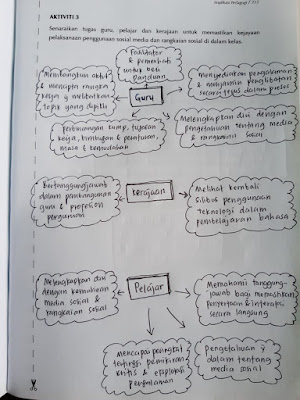 AKTIVITI 3
Senaraikan tugas guru, pelajar dan kerajaan untuk memastikan kejayaan
pelaksanaan penggunaan sosial media dan rangkaian sosial di dalam kelas.
Fasilitator
& pemerhati
untuk beri
panduan
Membangun aktiviti
& mencipta
kerja y melibatkan
topik yang dipilih
Guru
Menyediakan pengalaman
& menjamin penglibatan
secara terus dalam proses
Pertimbangan tempo, tujuan
kerja, kumpulan & peraturan,
masa & kepunyaan
Melengkapkan diri dengan
pengetahuan tentang media
& rangkaian sosial
Bertanggungjawab
dalam pembangunan
guru & profesion
perguruan
Kerajaan
Melihat kembali
silibus penggunaan
teknologi dalam
pembelajaran bahasa
Melengkapkan diri
dengan kemahiran
media sosial &
rangkaian sosial
Pelajar
Memahami tanggung-
jawab bagi memastikan
penyertaan & interaksi
secara langsung
Mencapai peringkat
tertinggi pemikiran
kritis & eksplorasi
pengalaman
Pengetahuan y
dalam tentang
media sosial